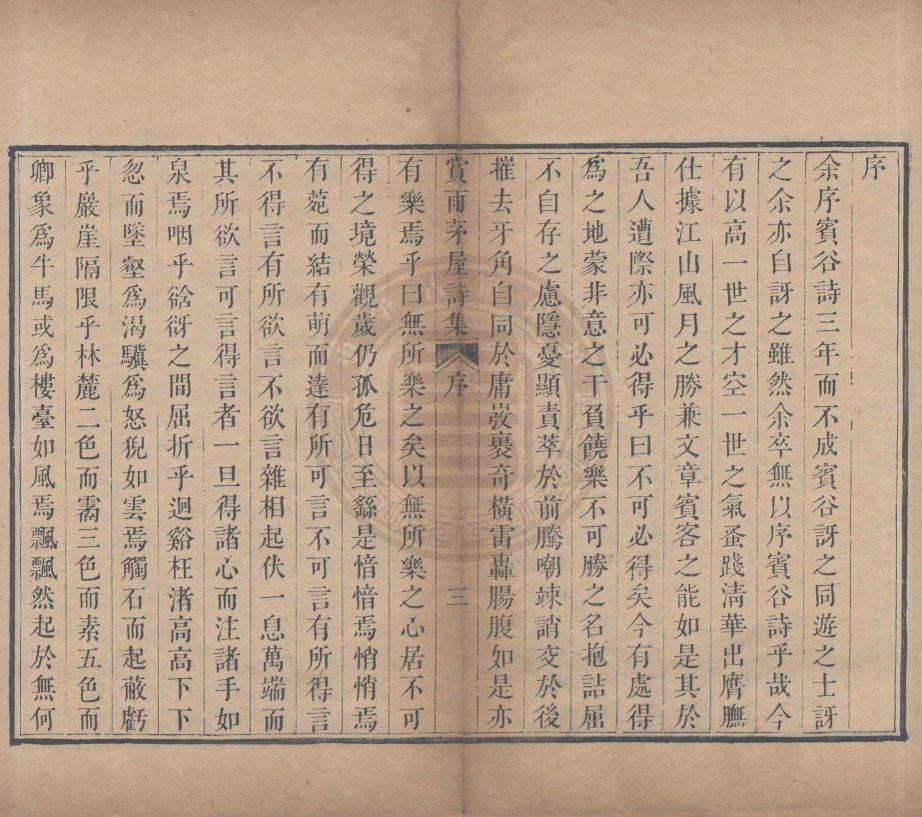 序
余序賓谷詩三年而不成賓谷訝之同遊之士訝
之余亦自訝之雖然余卒無以序賓谷詩乎哉今
有以高一世之才空一世之氣蚤踐淸華出膺膴
仕據江山風月之勝兼文章賓客之能如是其於
吾人遭際亦可必得乎曰不可必得矣今有處得
爲之地蒙非意之干負饒樂不可勝之名抱詰屈
不自存之慮隱憂顯責萃於前騰嘲竦誚交於後
摧去牙角自同於庸裹奇橫雷轟腸腹如是亦
賞雨茅屋詩集 序 三
有樂焉乎曰無所樂之矣以無所樂之心居不可
得之境榮觀歲仍孤危日至繇是愔愔焉悄悄焉
有菀而結有萌而達有所可言不可言有所得言
不得言有所欲言不欲言雜相起伏一息萬端而
其所欲言可言得言者一旦得諸心而注諸手如
泉焉咽乎谽谺之間屈折乎迴谿枉渚高高下下
忽而墜壑爲渴驥爲怒猊如雲焉觸石而起蔽虧
乎巖崖隔限乎林麓二色而霱三色而素五色而
卿象爲牛馬或爲樓臺如風焉飄飄然起於無何